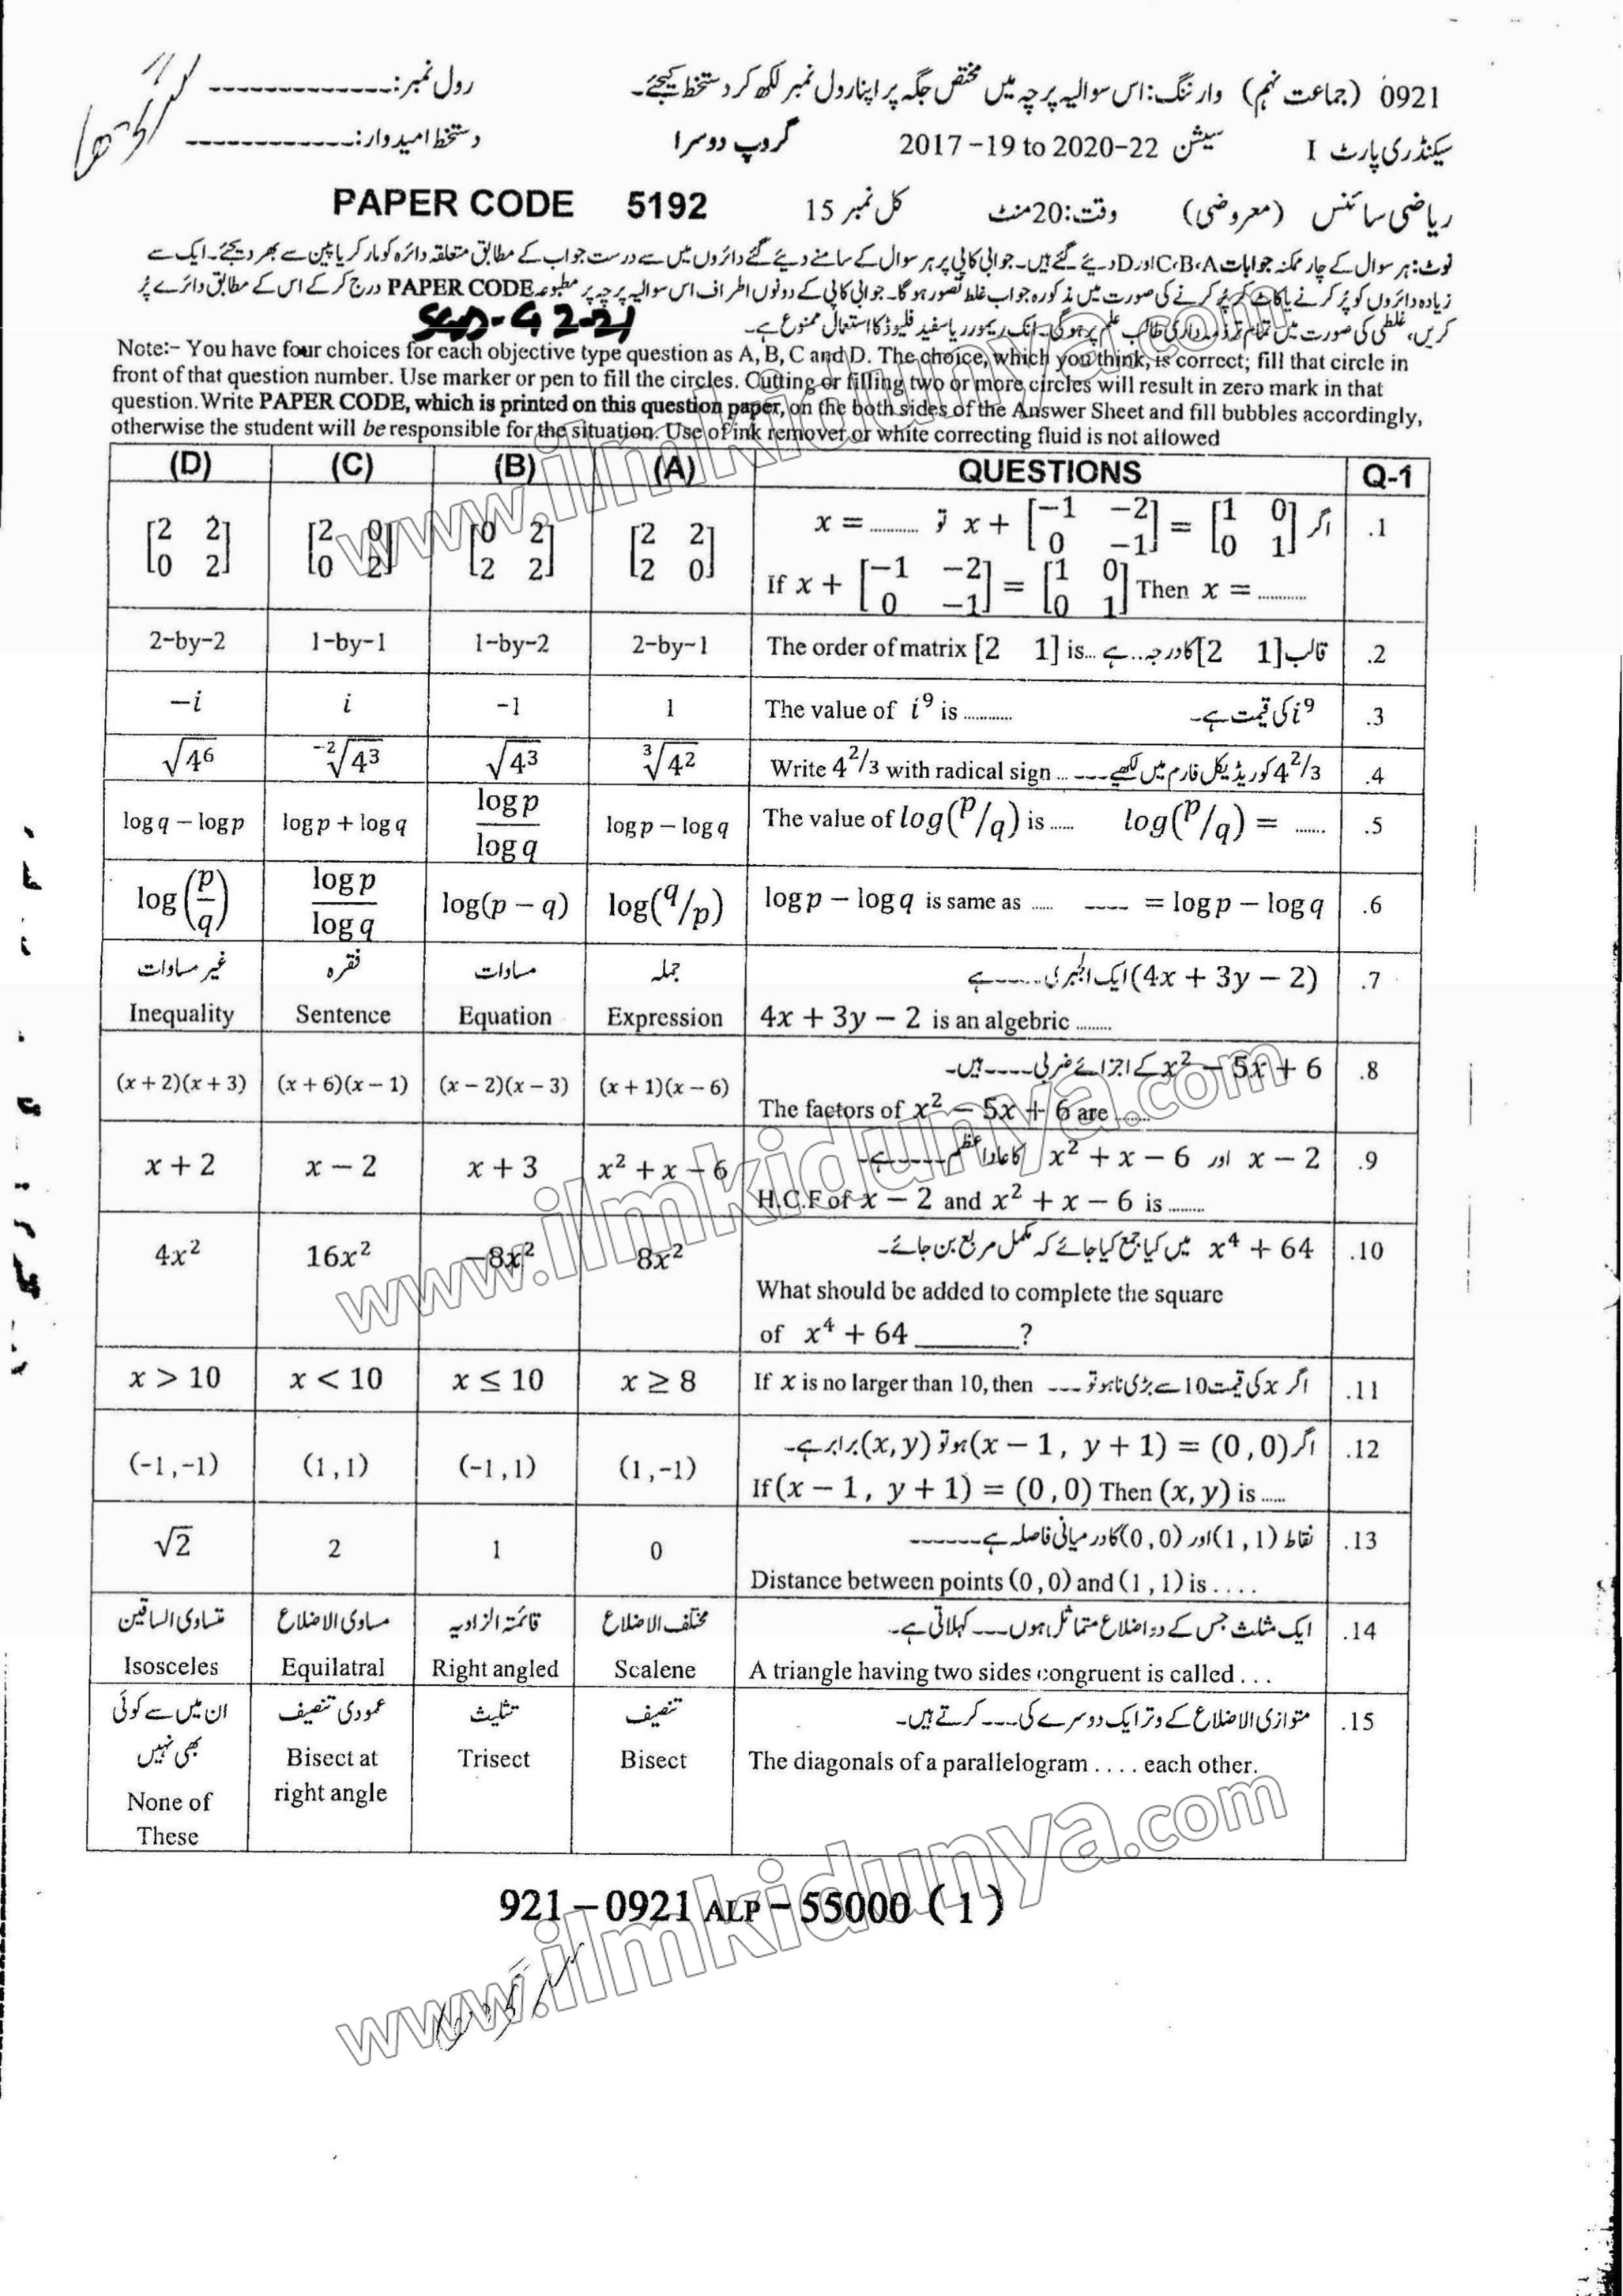 0921 (جماعت نہم) وارننگ: اس سوالیہ پرچہ میں مختص جگہ پر اپنا رول نمبر لکھ کر دستخط کیجئے۔ رول نمبر: -------------
سیکنڈری پارٹ I سیشن 2017 -19 to 2020-22 گروپ دوسرا دستخط امیدوار: -------------
ریاضی سائنس (معروضی) وقت: 20 منٹ کل نمبر 15 PAPER CODE 5192
نوٹ: ہر سوال کے چار ممکنہ جوابات C،B،A اور D دیئے گئے ہیں۔ جوابی کاپی پر ہر سوال کے سامنے دیئے گئے دائروں میں سے درست جواب کے مطابق متعلقہ دائرہ کو مارکر یا پین سے بھر دیجئے۔ ایک سے
زیادہ دائروں کو پُر کرنے یا کاٹ کر پُر کرنے کی صورت میں مذکورہ جواب غلط تصور ہوگا۔ جوابی کاپی کے دونوں اطراف اس سوالیہ پرچہ پر مطبوعہ PAPER CODE درج کر کے اس کے مطابق دائرے پُر
کریں، غلطی کی صورت میں تمام تر ذمہ داری طالب علم پر ہوگی۔ انک ریموور یا سفید فلیوڈ کا استعمال ممنوع ہے۔
Note:- You have four choices for each objective type question as A, B, C and D. The choice, which you think, is correct; fill that circle in
front of that question number. Use marker or pen to fill the circles. Cutting or filling two or more circles will result in zero mark in that
question. Write PAPER CODE, which is printed on this question paper, on the both sides of the Answer Sheet and fill bubbles accordingly,
otherwise the student will be responsible for the situation. Use of ink remover or white correcting fluid is not allowed
(D) (C) (B) (A) QUESTIONS Q-1
[2 2; 0 2] [2 0; 0 2] [0 2; 2 2] [2 2; 2 0] اگر x + [−1 −2; 0 −1] = [1 0; 0 1] تو x = .......... .1
If x + [−1 −2; 0 −1] = [1 0; 0 1] Then x = ..........
2-by-2 1-by-1 1-by-2 2-by-1 The order of matrix [2 1] is... قالب [2 1] کا درجہ... ہے .2
−i i -1 1 The value of i⁹ is .......... i⁹ کی قیمت ہے۔ .3
√4⁶ ⁻²√4³ √4³ ³√4² Write 4^2/3 with radical sign ... 4^2/3 کو ریڈیکل فارم میں لکھیے ---- .4
log q − log p log p + log q log p / log q log p − log q The value of log(p/q) is ..... log(p/q) = ...... .5
log(p/q) log p / log q log(p − q) log(q/p) log p − log q is same as ..... ---- = log p − log q .6
غیر مساوات فقرہ مساوات جملہ (4x + 3y − 2) ایک الجبری ----- ہے .7
Inequality Sentence Equation Expression 4x + 3y − 2 is an algebric ........
(x + 2)(x + 3) (x + 6)(x − 1) (x − 2)(x − 3) (x + 1)(x − 6) x² − 5x + 6 کے اجزائے ضربی ---- ہیں۔ .8
The factors of x² − 5x + 6 are .......
x + 2 x − 2 x + 3 x² + x − 6 x − 2 اور x² + x − 6 کا عاد اعظم ----- ہے۔ .9
H.C.F of x − 2 and x² + x − 6 is ........
4x² 16x² −8x² 8x² x⁴ + 64 میں کیا جمع کیا جائے کہ مکمل مربع بن جائے۔ .10
What should be added to complete the square
of x⁴ + 64 ________?
x > 10 x < 10 x ≤ 10 x ≥ 8 If x is no larger than 10, then اگر x کی قیمت 10 سے بڑی نا ہو تو --- .11
(-1,-1) (1,1) (-1,1) (1,-1) اگر (x − 1, y + 1) = (0,0) ہو تو (x,y) برابر ہے۔ .12
If (x − 1, y + 1) = (0,0) Then (x,y) is ......
√2 2 1 0 نقاط (1,1) اور (0,0) کا درمیانی فاصلہ ہے ------ .13
Distance between points (0,0) and (1,1) is ....
متساوی الساقین مساوی الاضلاع قائمۃ الزاویہ مختلف الاضلاع ایک مثلث جس کے دو اضلاع متماثل ہوں --- کہلاتی ہے۔ .14
Isosceles Equilatral Right angled Scalene A triangle having two sides congruent is called ...
ان میں سے کوئی عمودی تنصیف تثلیث تنصیف متوازی الاضلاع کے وتر ایک دوسرے کی --- کرتے ہیں۔ .15
بھی نہیں Bisect at Trisect Bisect The diagonals of a parallelogram .... each other.
None of right angle
These
921 – 0921 ALP – 55000 (1)
www.ilmkidunya.com
www.ilmkidunya.com
www.ilmkidunya.com